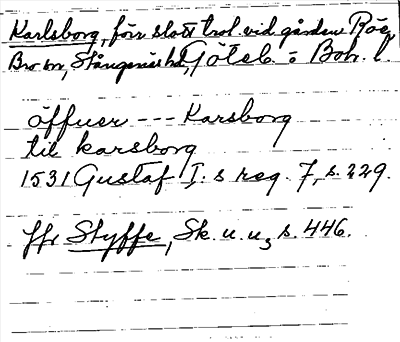 Karlsborg, förr slott trol. vid gården Röe,
Bro sn, Stångenäs hd, Göteb. o Boh. l.
öffuer --- Karsborg
til karsborg
1531 Gustaf I:s reg. 7, s. 229.
jfr Styffe, Sk. u. u., s. 446.